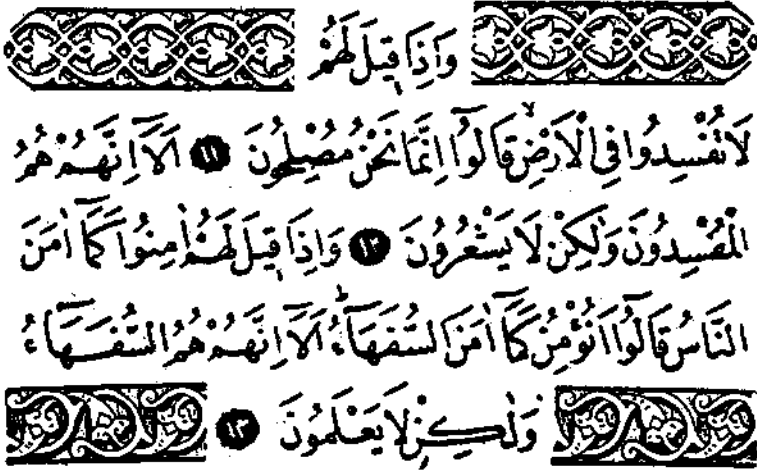 وَاِذَا قٖيلَ لَهُمْ
لَا تُفْسِدُوا فِى الْاَرْضِۙ قَالُٓوا اِنَّمَا نَحْنُ مُصْلِحُونَ ﴿١١﴾ اَلَٓا اِنَّهُمْ هُمُ
الْمُفْسِدُونَ وَلٰكِنْ لَا يَشْعُرُونَ ﴿١٢﴾ وَاِذَا قٖيلَ لَهُمْ اٰمِنُوا كَمَٓا اٰمَنَ
النَّاسُ قَالُٓوا اَنُؤْمِنُ كَمَٓا اٰمَنَ السُّفَهَٓاءُۜ اَلَٓا اِنَّهُمْ هُمُ السُّفَهَٓاءُ
وَلٰكِنْ لَا يَعْلَمُونَ ﴿١٣﴾